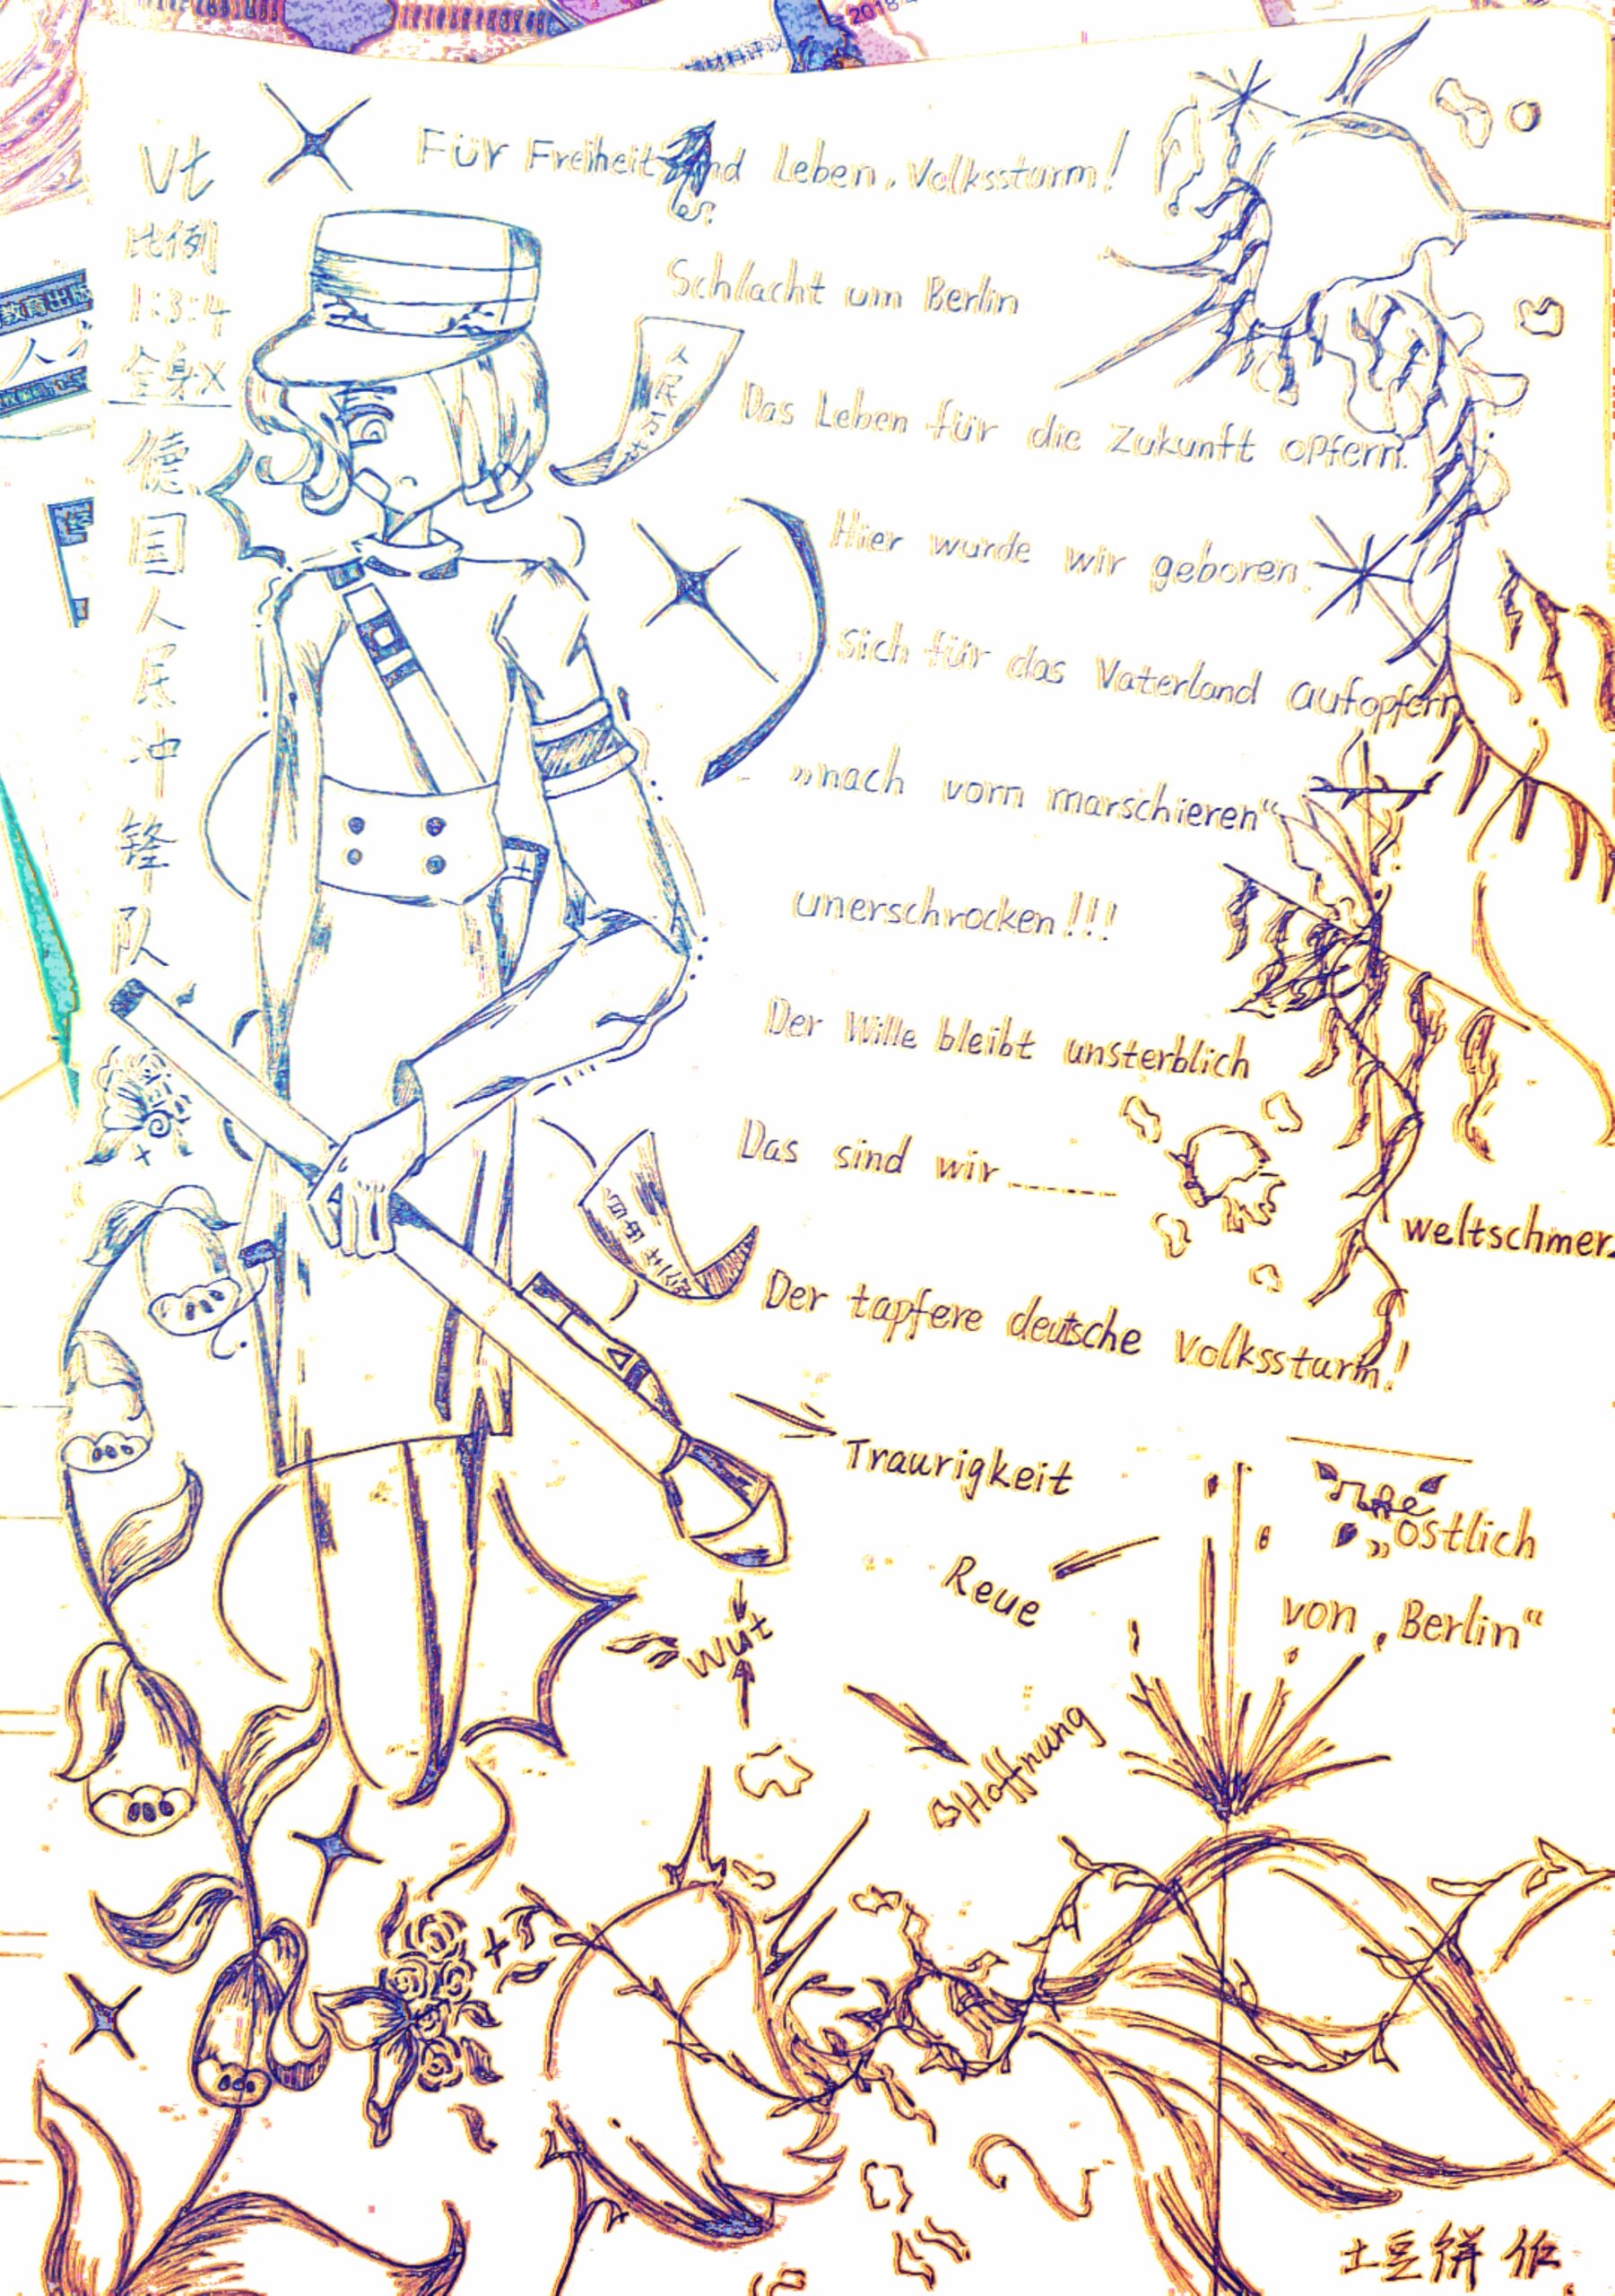 2018
材料评议
Vt
比例
1:3:4
全身X
德国人民冲锋队
教育出版
Für Freiheit und Leben. Volkssturm!
Schlacht um Berlin
人民万岁
Das Leben für die Zukunft opfern.
Hier wurde wir geboren.
Sich für das Vaterland aufopfern
„nach vorn marschieren“
unerschrocken!!!
Der Wille bleibt unsterblich
Das sind wir
Weltschmer
Der tapfere deutsche Volkssturm!
Traurigkeit
„östlich
Reue
von „Berlin“
Wut
Hoffnung
土豆饼 作